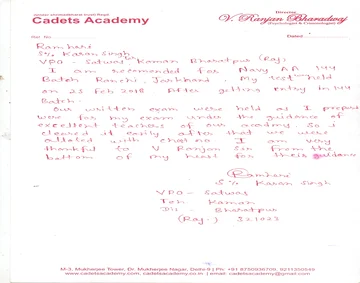 Cadets Academy
Director
V. Ranjan Bharadwaj
(Psychologist & Criminologist)
Ref. No.
Dated
Ramhari
S/o Karan Singh
VPO - Satwas Kaman Bharatpur (Raj)
I am recomended for Navy AA 144
Batch Ranchi, Jharkhand. My test held
on 23 Feb 2018 After getting entry in 144
Batch.
Our written exam were held as I prepare
were for my exam under the guidance of
excellent teachers of our academy. So i
cleared it easily after that we were
alloted with chest no. I am very
thankful to V Ranjan Sir from the
bottom of my heart for their guidance
Ramhari
S/o Karan Singh
VPO - Satwas
Teh Kaman
Dis - Bharatpur
(Raj.) 321023
M-3, Mukharjee Tower, Dr. Mukharjee Nagar, Delhi-9 | Ph:
www.cadetsacademy.in / www.cadetsacademy.com, email: cadetsacademy@